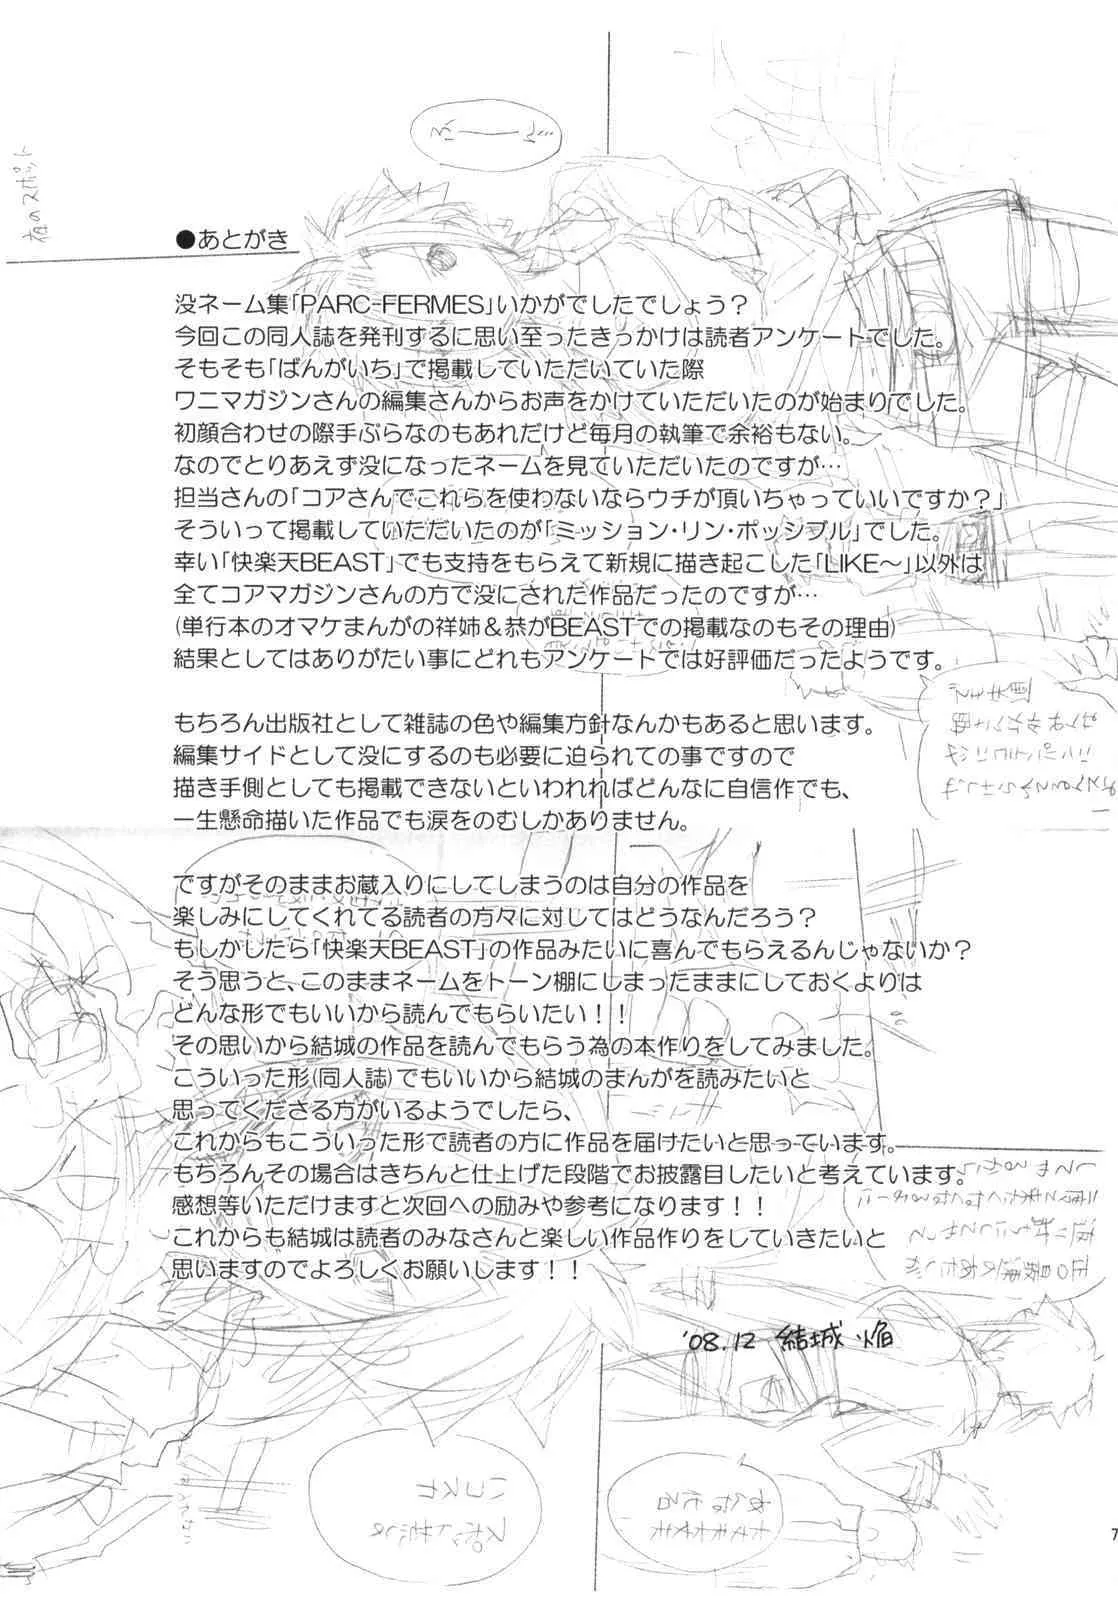 ●あとがき
没ネーム集「PARC-FERMES」いかがでしたでしょう？
今回この同人誌を発刊するに思い至ったきっかけは読者アンケートでした。
そもそも「ばんがいち」で掲載していただいていた際
ワニマガジンさんの編集さんからお声をかけていただいたのが始まりでした。
初顔合わせの際手ぶらなのもあれだけど毎月の執筆で余裕もない。
なのでとりあえず没になったネームを見ていただいたのですが…
担当さんの「コアさんでこれらを使わないならウチが頂いちゃっていいですか？」
そういって掲載していただいたのが「ミッション・リン・ポッシブル」でした。
幸い「快楽天BEAST」でも支持をもらえて新規に描き起こした「LIKE～」以外は
全てコアマガジンさんの方で没にされた作品だったのですが…
(単行本のオマケまんがの祥姉＆恭がBEASTでの掲載なのもその理由)
結果としてはありがたい事にどれもアンケートでは好評価だったようです。
もちろん出版社として雑誌の色や編集方針なんかもあると思います。
編集サイドとして没にするのも必要に迫られての事ですので
描き手側としても掲載できないといわれればどんなに自信作でも、
一生懸命描いた作品でも涙をのむしかありません。
ですがそのままお蔵入りにしてしまうのは自分の作品を
楽しみにしてくれてる読者の方々に対してはどうなんだろう？
もしかしたら「快楽天BEAST」の作品みたいに喜んでもらえるんじゃないか？
そう思うと、このままネームをトーン棚にしまったままにしておくよりは
どんな形でもいいから読んでもらいたい！！
その思いから結城の作品を読んでもらう為の本作りをしてみました。
こういった形(同人誌)でもいいから結城のまんがを読みたいと
思ってくださる方がいるようでしたら、
これからもこういった形で読者の方に作品を届けたいと思っています。
もちろんその場合はきちんと仕上げた段階でお披露目したいと考えています。
感想等いただけますと次回への励みや参考になります！！
これからも結城は読者のみなさんと楽しい作品作りをしていきたいと
思いますのでよろしくお願いします！！
'08.12 結城 焔
ハコスカ
7